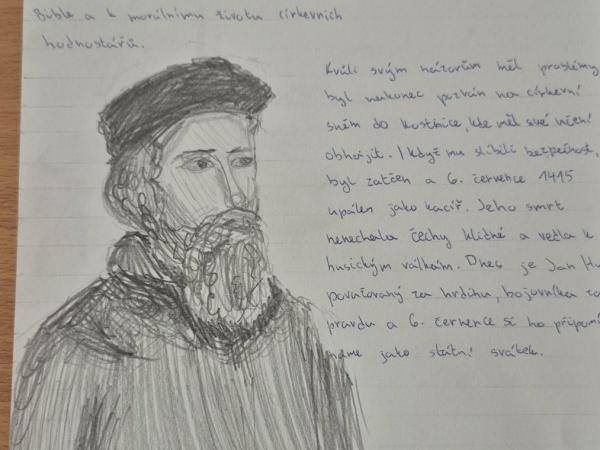 Bible a k morálnímu životu církevních
hodnostářů.
Kvůli svým názorům měl problémy
byl nakonec pozván na církevní
sněm do Kostnice, kde měl své učení
obhájit. I když mu slíbili bezpečnost,
byl zatčen a 6. července 1415
upálen jako kacíř. Jeho smrt
nenechala Čechy klidné a vedla k
husickým válkám. Dnes je Jan Hu
považovaný za hrdinu, bojovníka za
pravdu a 6. července si ho připomí
náme jako státní svátek.